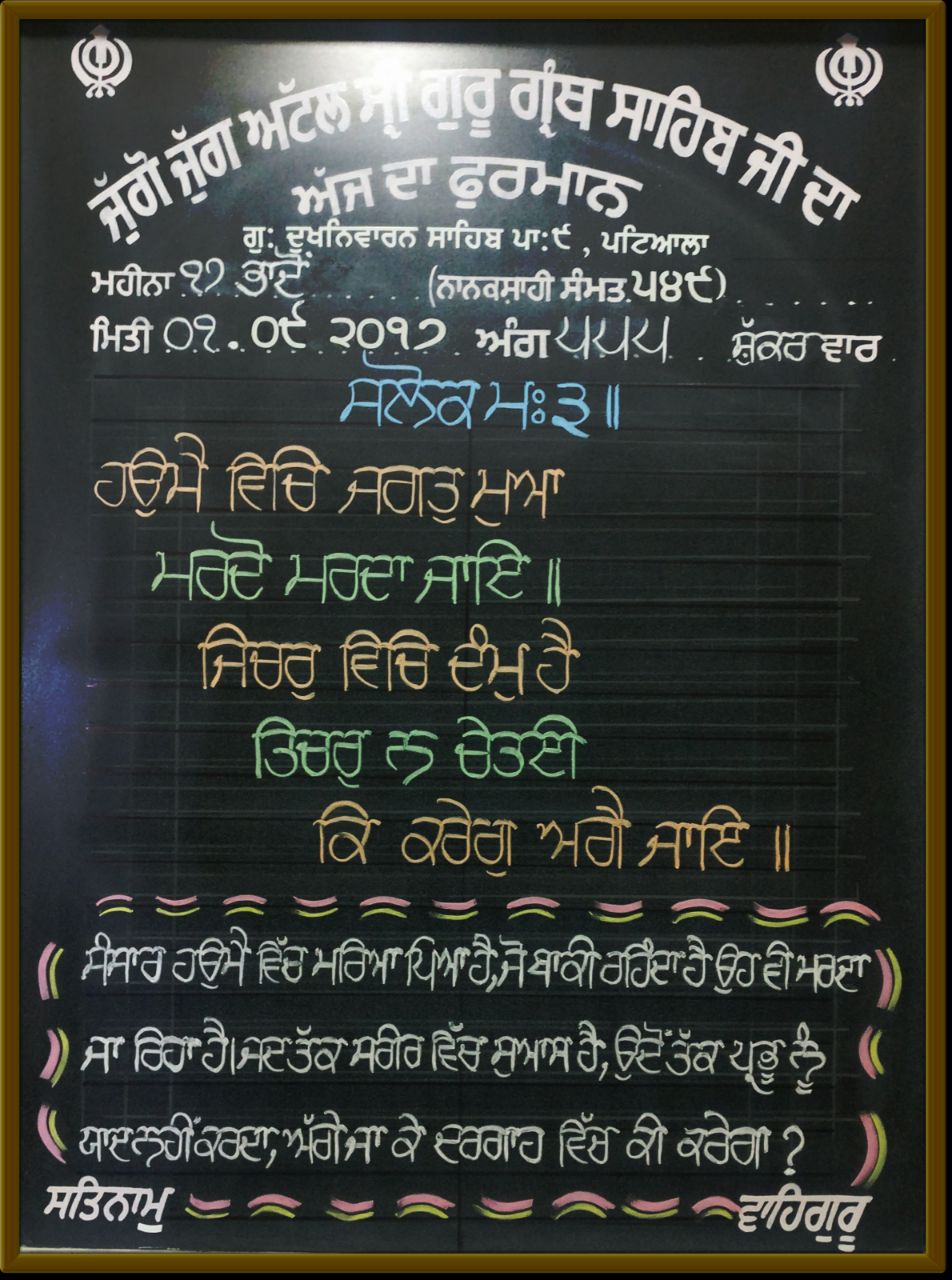 ਜੁੱਗੋ ਜੁੱਗ ਅਟੱਲ ਸ੍ਰੀ ਗੁਰੂ ਗ੍ਰੰਥ ਸਾਹਿਬ ਜੀ ਦਾ
ਅੱਜ ਦਾ ਫੁਰਮਾਨ
ਗੁ: ਦੂਖਨਿਵਾਰਨ ਸਾਹਿਬ ਪਾ:੯, ਪਟਿਆਲਾ
ਮਹੀਨਾ ੧੭ ਭਾਦੋਂ (ਨਾਨਕਸ਼ਾਹੀ ਸੰਮਤ ੫੪੯)
ਮਿਤੀ ੦੧.੦੯ ੨੦੧੭ ਅੰਗ ੫੫੫ ਸ਼ੁੱਕਰ ਵਾਰ
ਸਲੋਕ ਮਃ ੩ ॥
ਹਉਮੈ ਵਿਚਿ ਜਗਤੁ ਮੁਆ
ਮਰਦੋ ਮਰਦਾ ਜਾਇ ॥
ਜਿਚਰੁ ਵਿਚਿ ਦੰਮੁ ਹੈ
ਤਿਚਰੁ ਨ ਚੇਤਈ
ਕਿ ਕਰੇਗੁ ਅਗੈ ਜਾਇ ॥
ਸੰਸਾਰ ਹਉਮੈ ਵਿੱਚ ਮਰਿਆ ਪਿਆ ਹੈ, ਜੋ ਬਾਕੀ ਰਹਿੰਦਾ ਹੈ ਉਹ ਵੀ ਮਰਦਾ
ਜਾ ਰਿਹਾ ਹੈ। ਜਦ ਤੱਕ ਸਰੀਰ ਵਿੱਚ ਸੁਆਸ ਹੈ, ਉਦੋਂ ਤੱਕ ਪ੍ਰਭੂ ਨੂੰ
ਯਾਦ ਨਹੀਂ ਕਰਦਾ, ਅੱਗੇ ਜਾ ਕੇ ਦਰਗਾਹ ਵਿੱਚ ਕੀ ਕਰੇਗਾ ?
ਸਤਿਨਾਮੁ ਵਾਹਿਗੁਰੂ